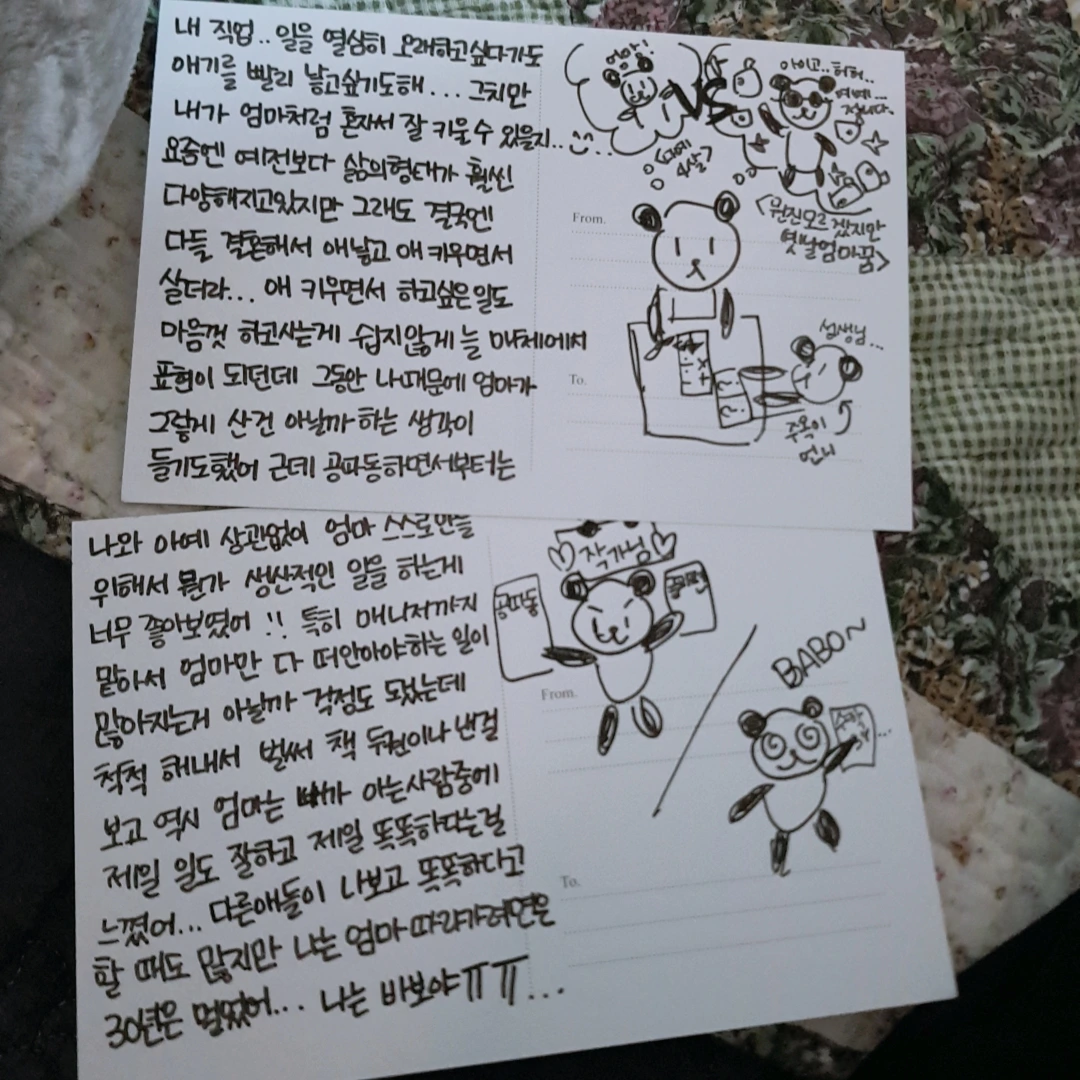 내 직업.. 일을 열심히 오래하고싶다가도
애기를 빨리 낳고싶기도해... 그치만
내가 엄마처럼 혼자서 잘 키울수 있을지..
요즘엔 예전보다 삶의형태가 훨씬
다양해지고있지만 그래도 결국엔
다들 결혼해서 애낳고 애 키우면서
살더라... 애 키우면서 하고싶은일도
마음껏 하고사는게 쉽지않게 늘 매체에서
표현이 되던데 그동안 나때문에 엄마가
그렇게 산건 아닐까 하는 생각이
들기도했어 근데 공따동하면서부터는
VS
아이고.. 허허..
4살>
<뭔진모르겠지만
옛날엄마꿈>
From.
To.
선생님...
주옥이
언니
나와 아예 상관없이 엄마 스스로만을
위해서 뭔가 생산적인 일을 하는게
너무 좋아보였어 !! 특히 매니저까지
맡아서 엄마만 다 떠안아야하는 일이
많아지는거 아닐까 걱정도 되었는데
척척 해내서 벌써 책 두권이나 낸걸
보고 역시 엄마는 내가 아는사람중에
제일 일도 잘하고 제일 똑똑하다는걸
느꼈어... 다른애들이 나보고 똑똑하다고
할 때도 많지만 나는 엄마 따라가려면은
30년은 멀었어... 나는 바보야ㅠㅠ...
♡작가님♡
공따동
From.
BABO~
To.